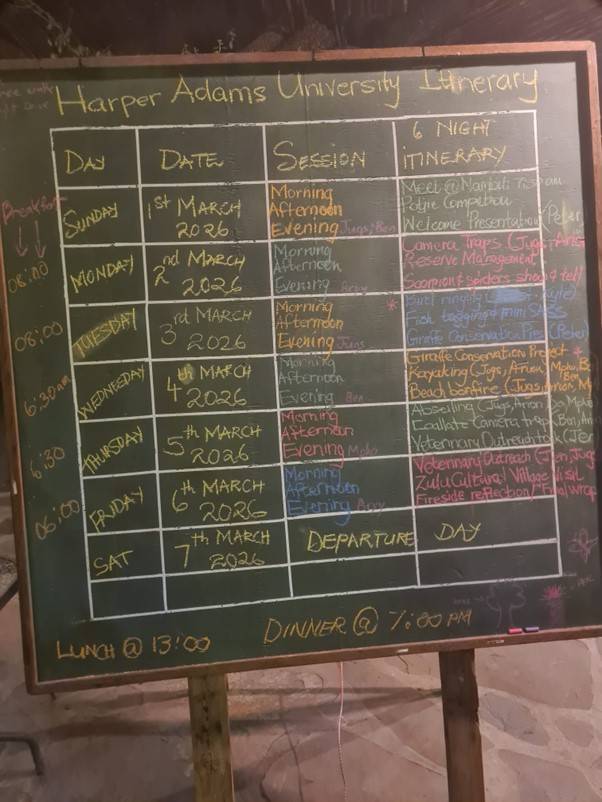 Harper Adams University Itinerary
DAY DATE SESSION 6 NIGHT ITINERARY
Breakfast
SUNDAY 1st MARCH 2026
Morning Meet @ Nambiti
Afternoon Potjie Competition
Evening Jugs, Ben Welcome Presentation (Peter
08:00 MONDAY 2nd MARCH 2026
Morning Camera Traps (Jugs,
Afternoon Reserve Management
Evening Scorpion & spiders show & tell
08:00 TUESDAY 3rd MARCH 2026
Morning
Afternoon Fish tagging & mini SASS
Evening Jugs Giraffe Conservation Pres (Peter
6:30am WEDNEEDAY 4th MARCH 2026
Morning Giraffe Conservation Project
Afternoon Kayaking (Jugs, Arron, Moko,
Evening Ben Beach bonfire (Jugs, Arron,
6:30 THURSDAY 5th MARCH 2026
Morning Abseiling (Jugs, Arron, Moko
Afternoon Coallate Camera traps Ben,
Evening Moko Veterinary Outreach talk (Jen
06:00 FRIDAY 6th MARCH 2026
Morning Veterinary Outreach (Jen, Jugs
Afternoon Zulu Cultural Village Visit
Evening Fireside reflection/ Final wrap
SAT 7th MARCH 2026 DEPARTURE DAY
LUNCH @ 13:00 DINNER @ 7:00 PM